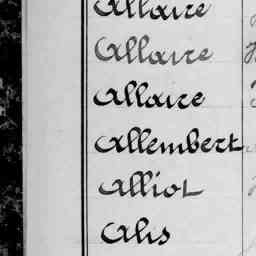 Allaire
Allaire
Allaire
Allembert
Alliot
Alis